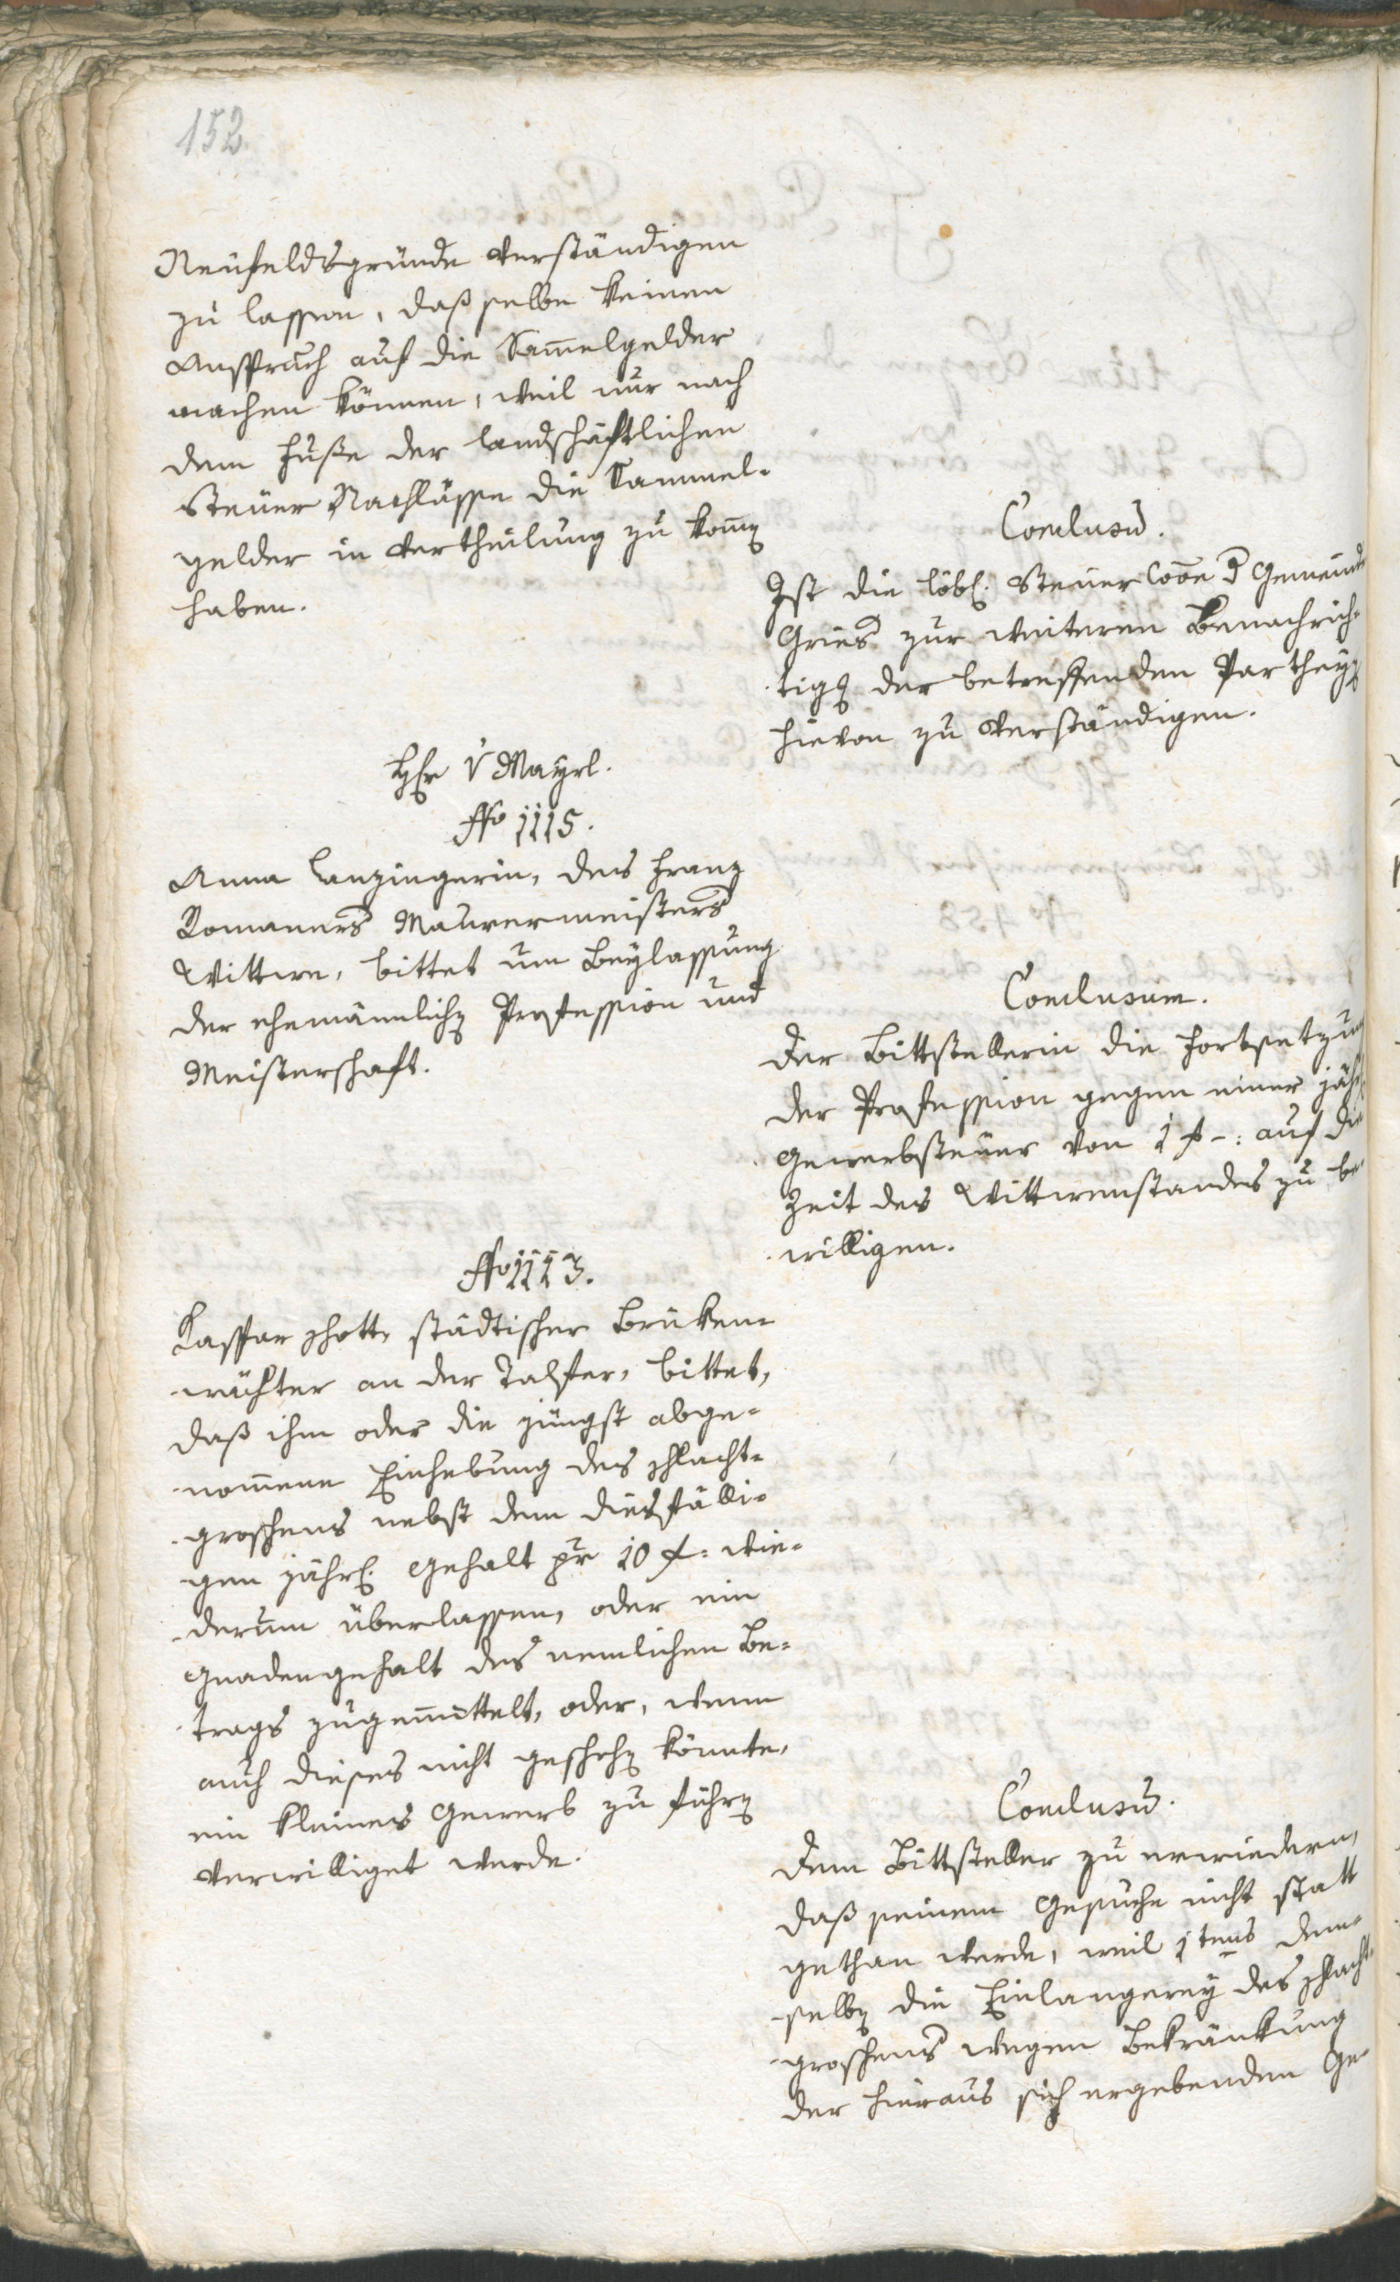 152
Neufeldsgründe verständigen
zu lassen, daß selbe keinen
Anspruch auf die Sammelgelder
machen können, weil nur nach
dem Fuße der landschäftlichen
Steuer Nachlässe die Sammel-
gelder in Vertheilung zu kom̅en
haben.
Conclusum.
Ist die löbl. Steuer Coon d Gemeinde
Gries zur weiteren Benachrich-
tigg der betreffenden Partheyen
hievon zu verständigen.
Hr v Mayrl.
No 1115.
Anna Lanzingerin, des Franz
Romaners Maurermeisters
Wittwe, bittet um Beylassung
der ehemännlichen Profession und
Meisterschaft.
Conclusum.
Der Bittstellerin die Fortsetzung
der Profession gegen einer jährl.
Gewerbsteuer von 1 f -: auf die
Zeit des Wittwenstandes zu be-
willigen.
No 1113.
Kaspar Schott, städtischer Brüken-
wächter an der Talfer, bittet,
daß ihm oder die jüngst abge-
nom̅ene Einhebung des Schlacht-
groschens nebst dem diesfälli-
gen jährl. Gehalt pr 10 f: wie-
derum überlassen, oder ein
Gnadengehalt des nemlichen Be-
trags zugemittelt, oder, wenn
auch dieses nicht geschehen könnte,
ein kleines Gewerb zu führen
verwilliget werde.
Conclusum.
Dem Bittsteller zu erwiedern,
daß seinem Gesuche nicht statt
gethan werde, weil 1tens dem-
selben die Einlangerey des Schlacht-
groschens wegen Bekränkung
der hieraus sich ergebenden Ge-